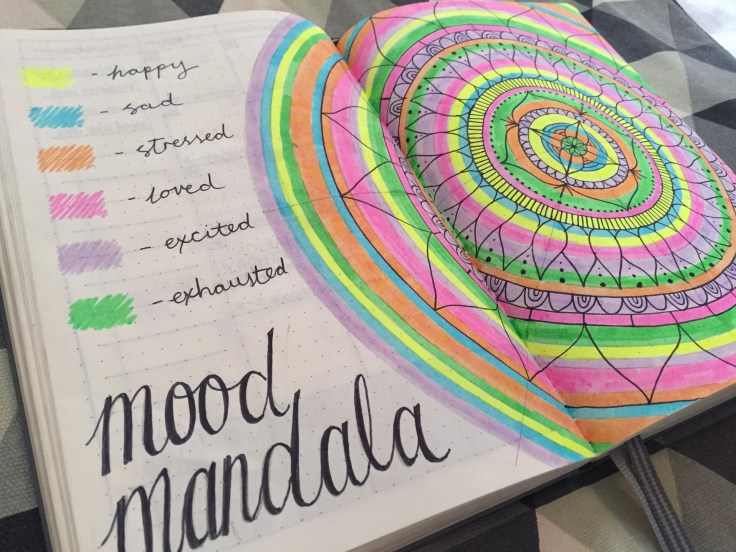 - happy
- sad
- stressed
- loved
- excited
- exhausted
mood
mandala